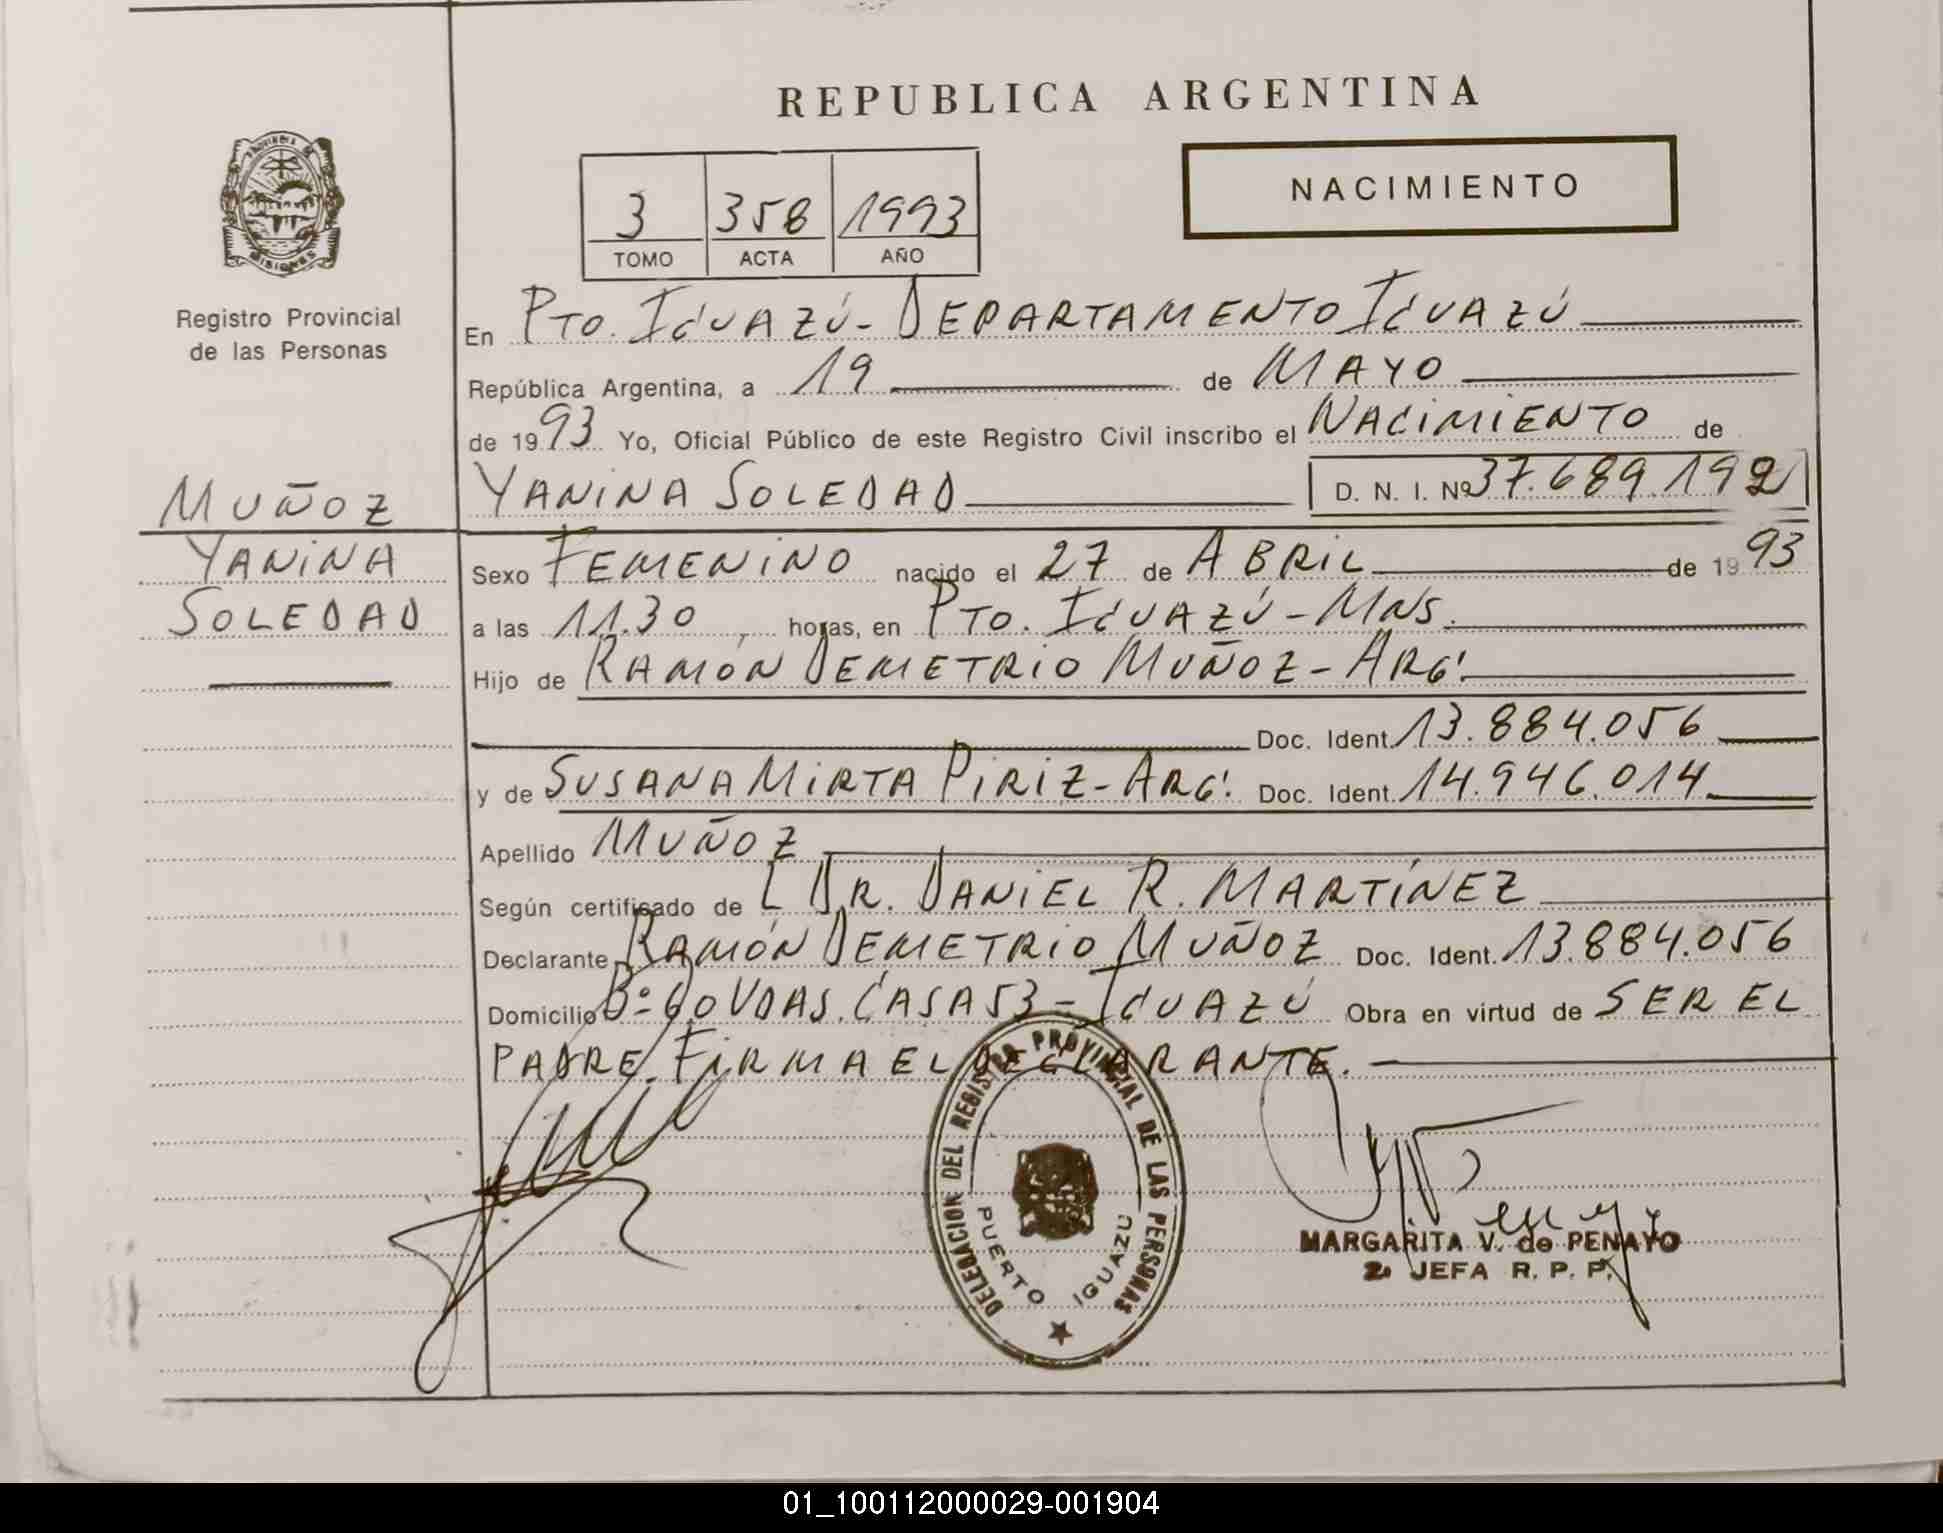 REPUBLICA ARGENTINA
PROVINCIA DE
MISIONES
Registro Provincial
de las Personas
NACIMIENTO
3 358 1993
TOMO ACTA AÑO
En PTO. IGUAZÚ - DEPARTAMENTO IGUAZÚ
República Argentina, a 19 de MAYO
de 1993 Yo, Oficial Público de este Registro Civil inscribo el NACIMIENTO de
YANINA SOLEDAD D. N. I. Nº 37.689.192
MUÑOZ
YANINA
SOLEDAD
Sexo FEMENINO nacido el 27 de ABRIL de 1993
a las 11.30 horas, en PTO. IGUAZÚ - MNS.
Hijo de RAMÓN DEMETRIO MUÑOZ - ARG.
Doc. Ident. 13.884.056
y de SUSANA MIRTA PIRIZ - ARG. Doc. Ident. 14.946.014
Apellido MUÑOZ
Según certificado de L DR. DANIEL R. MARTÍNEZ
Declarante RAMÓN DEMETRIO MUÑOZ Doc. Ident. 13.884.056
Domicilio Bº 60 VDAS. CASA 53 - IGUAZÚ Obra en virtud de SER EL
PADRE. FIRMA EL DECLARANTE.
DELEGACION DEL REGISTRO PROVINCIAL DE LAS PERSONAS
PUERTO IGUAZU
MARGARITA V. de PENAYO
2. JEFA R. P. P.
01_100112000029-001904